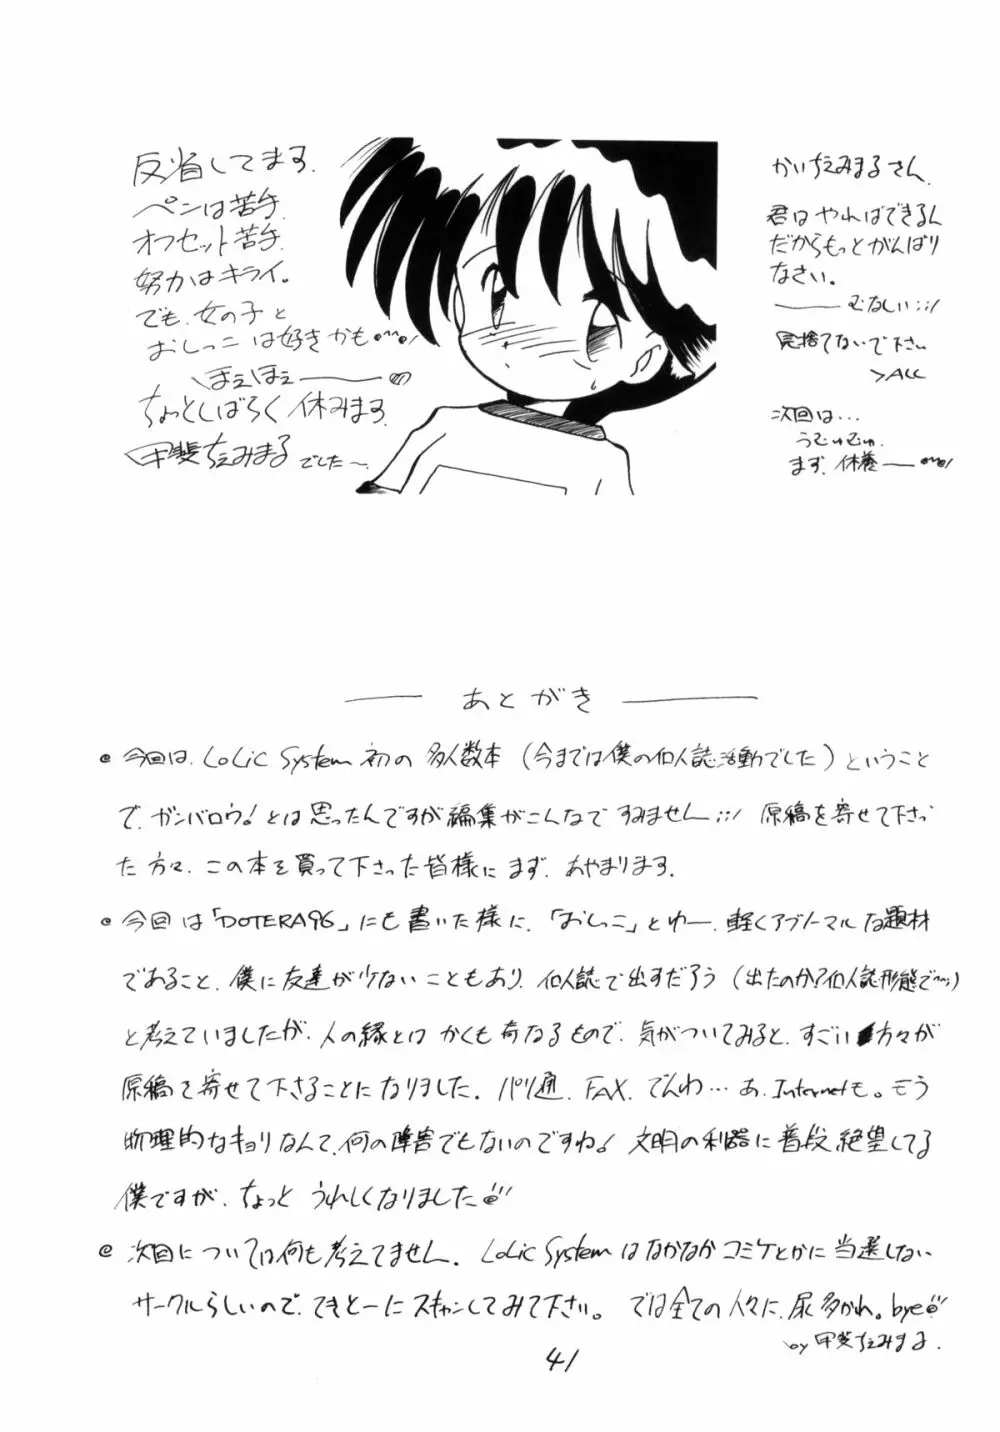 反省してます.
ペンは苦手.
オフセット苦手.
努力はキライ。
でも、女の子と
おしっこ は好きかも
ほえほえ
ちょっとしばらく 休みます.
甲斐ちえみまるでした〜.
かいちえみまるさん.
君はやればできるん
だからもっとがんばり
なさい。
むなしい;;!
見捨てないで下さい
>ALL
次回は...
うむゅむゅ.
まず.休養
あとがき
@ 今回は、LoLic System 初の 多人数本 (今までは僕の個人誌活動でした) ということ
で、ガンバロウ!とは思ったんですが編集がこんなですみません;;! 原稿を寄せて下さっ
た方々、この本を買って下さった皆様に まず、あやまります.
@ 今回は「DOTERA96」にも書いた様に、「おしっこ」とゆー、軽くアブノーマルな題材
であること、僕に友達が少ないこともあり、個人誌で出すだろう (出たのか?個人誌形態で〜;)
と考えていましたが、人の縁とは かくも奇なるもので、気がついてみると、すごい方々が
原稿を寄せて下さることになりました. パソ通、FAX、でんわ...あ、Internetも。もう
物理的なキョリなんて、何の障害でもないのですね! 文明の利器に普段絶望してる
僕ですが、ちょっと うれしくなりました
@ 次回については何も考えてません. LoLic System はなかなかコミケとかに当選しない
サークルらしいので、てきとーにスキャンしてみて下さい。 では全ての人々に、尿多かれ。bye
by 甲斐ちえみまる.
41